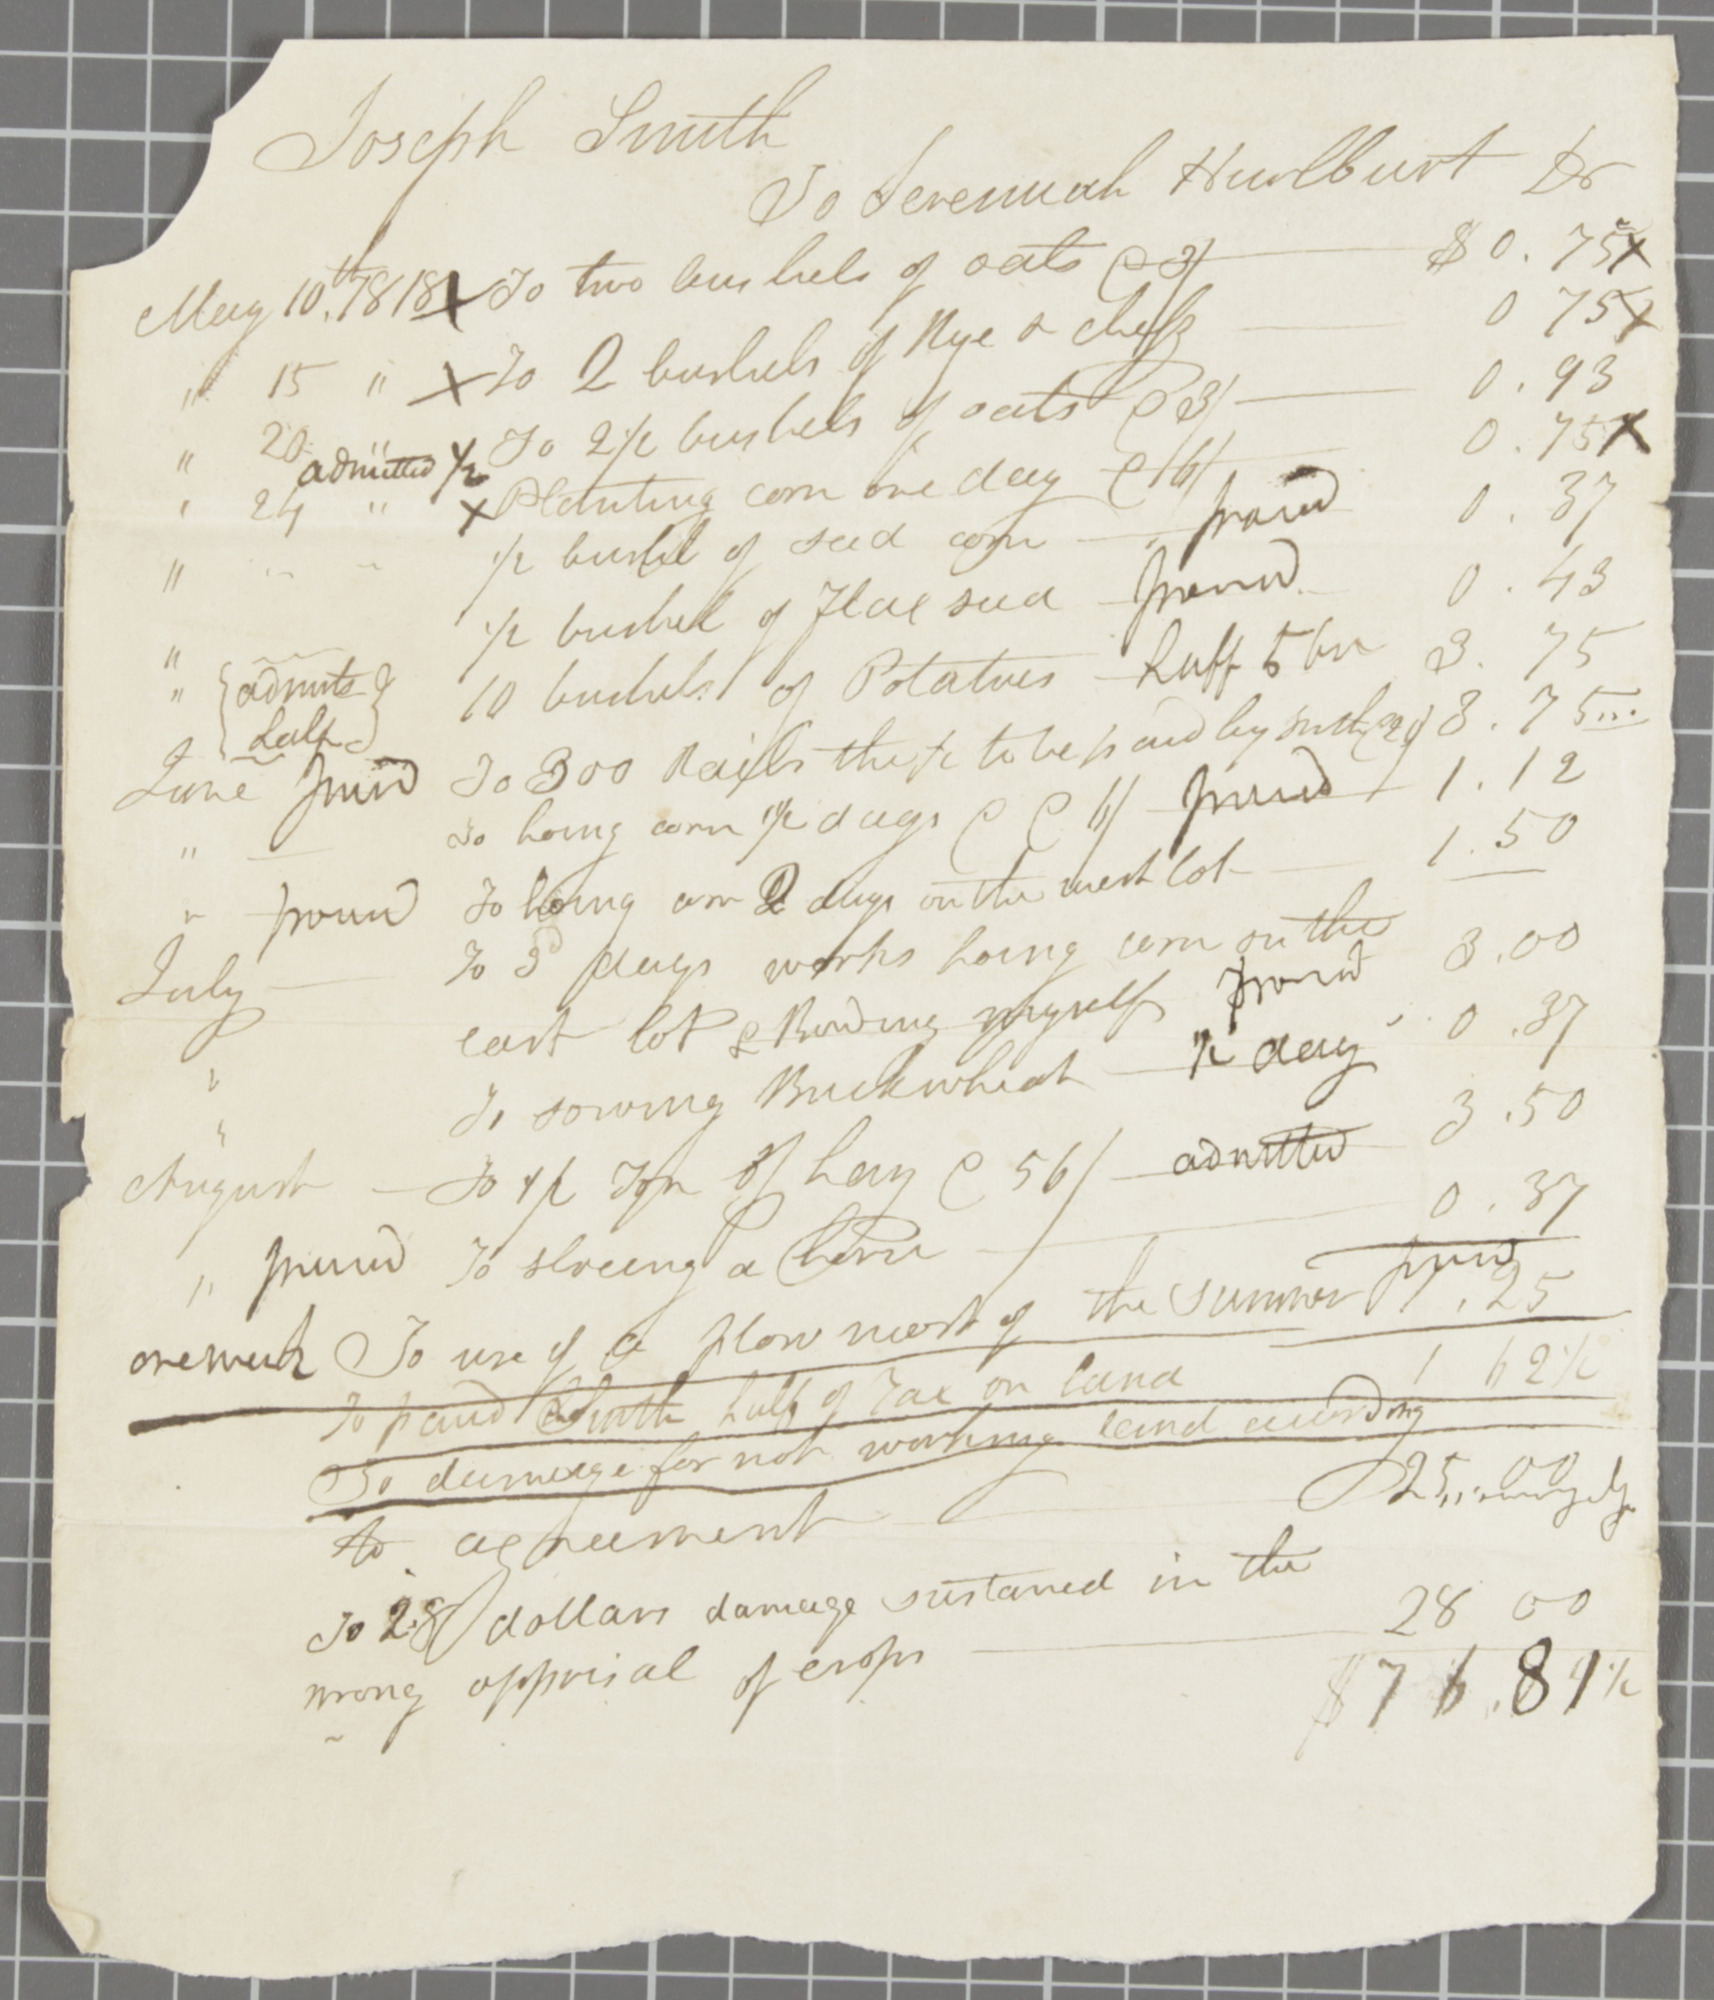 Joseph Smith
To Jeremiah Hurlburt Dr
May 10th. 1818 X To two bushels of oats @ 3/ $0.75 X
" 15 " X To 2 bushels of Rye & chess 0 75 X
" 20 " To 2 1/2 bushels of oats @ 3/ 0.93
admitted 1/2
" 24 " X Planting corn one day @ 6/ 0.75 X
" 1/2 bushel of seed corn proved 0.37
" 1/2 bushel of Flax seed proved 0.43
" {admits half} 10 bushels of Potatoes half 5 bu 3.75
June proved To 300 Rails the 1/2 to be paid by Smith 3.75
" To hoing corn 1 1/2 days @ 6/ proved 1.12
" proved To hoing corn 2 days on the west lot 1.50
July To 3 days works hoing corn on the
east lot & Bording myself proved 3.00
" To sowing Buckwheat 1/2 day 0.37
August To 1/2 Ton of hay @ 56/ admitted 3.50
" proved To shoeing a horse 0.37
proved
one week To use of a plow most of the summer 1.25
To paid Smith half of Tax on land 1 62 1/2
To damage for not working land according
to agreement 25.00
To 28 dollars damage sustaned in the
wrong apprisal of crops 28 00
$76.81 1/2